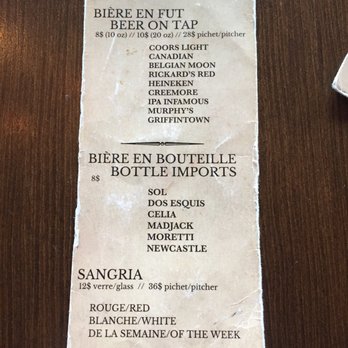 BIÈRE EN FUT
BEER ON TAP
8$ (10 oz) // 10$ (20 oz) // 28$ pichet/pitcher
COORS LIGHT
CANADIAN
BELGIAN MOON
RICKARD'S RED
HEINEKEN
CREEMORE
IPA INFAMOUS
MURPHY'S
GRIFFINTOWN
BIÈRE EN BOUTEILLE
BOTTLE IMPORTS
8$
SOL
DOS ESQUIS
CELIA
MADJACK
MORETTI
NEWCASTLE
SANGRIA
12$ verre/glass // 36$ pichet/pitcher
ROUGE/RED
BLANCHE/WHITE
DE LA SEMAINE/OF THE WEEK